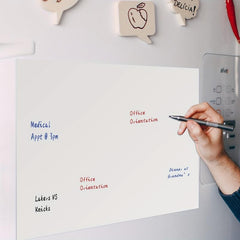 DELICIA!
Office
Orientation
Medical
Appt @ 3pm
Office
Orientation
Dinner at
Grandma's
Lakers VS
Knicks